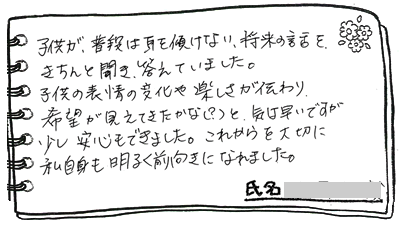 子供が、普段は耳を傾けない、将来の話を、
きちんと聞き、答えていました。
子供の表情の変化や楽しさが伝わり、
希望が見えてきたかな(?)と、気は早いですが
少し安心もできました。これからを大切に
私自身も明るく前向きになれました。
氏名